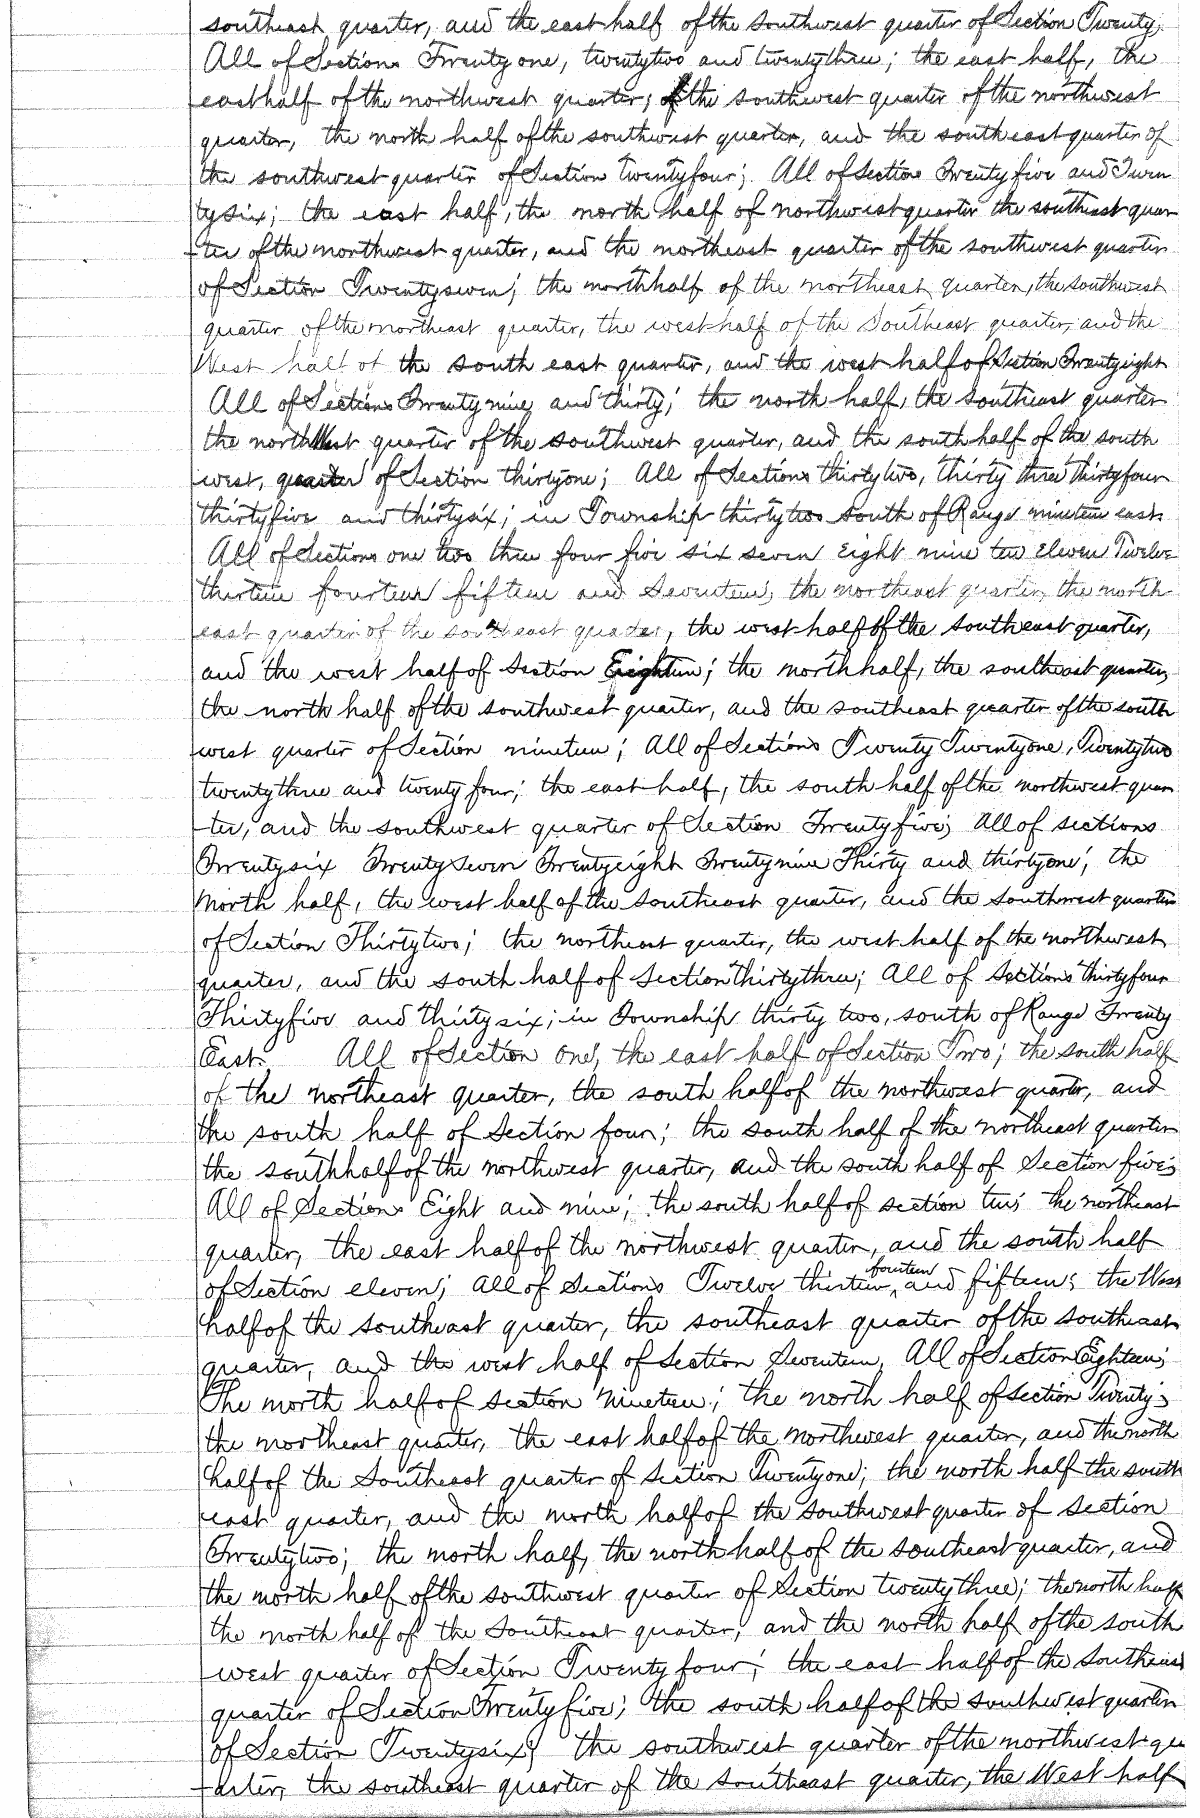 southeast quarter, and the east half of the southwest quarter of Section Twenty.
All of Sections Twenty one, twentytwo and twentythree; the east half, the
easthalf of the northwest quarter; the southwest quarter of the northwest
quarter, the north half of the southwest quarter, and the southeast quarter of
the southwest quarter of Section twentyfour; All of Sections Twentyfive and Twen
tysix; the east half, the north half of northwest quarter the southeast quar
-ter of the northwest quarter, and the northeast quarter of the southwest quarter
of Section Twentyseven; the northhalf of the northeast quarter, the southwest
quarter of the northeast quarter, the west half of the Southeast quarter, and the
West half of the south east quarter, and the west half of Section Twentyeight
All of Sections Twentynine and thirty; the north half, the southeast quarter
the northWest quarter of the southwest quarter, and the southhalf of the south
west, quarter of Section thirtyone; All of Sections thirtytwo, thirty three thirtyfour
thirtyfive and thirtysix; in Township thirtytwo south of Range nineteen east.
All of Sections one two three four five six seven Eight nine ten Eleven Twelve
thirteen fourteen fifteen and Seventeen; the northeast quarter, the north
east quarter of the southeast quarter, the west half of the southeast quarter,
and the west half of Section Eighteen; the northhalf, the southeast quarter,
the north half of the southwest quarter, and the southeast quarter of the south
west quarter of Section nineteen; All of Sections Twenty Twentyone, Twentytwo
twentythree and twenty four; the east half, the south half of the northwest quar
-ter, and the southwest quarter of Section Twentyfive; All of sections
Twentysix Twentyseven Twentyeight Twentynine Thirty and thirtyone; the
North half, the west half of the Southeast quarter, and the Southwest quarter
of Section Thirtytwo; the northeast quarter, the west half of the northwest
quarter, and the south half of Section thirtythree; All of Sections thirtyfour
Thirtyfive and thirtysix; in Township thirty two, south of Range Twenty
East. All of Section One, the east half of Section Two; the south half
of the northeast quarter, the south half of the northwest quarter, and
the south half of Section four; the south half of the northeast quarter
the southhalf of the northwest quarter, and the south half of Section five;
All of Sections Eight and nine; the south half of section ten; the northeast
quarter, the east half of the northwest quarter, and the south half
of Section eleven; All of Sections Twelve thirteen, fourteen and fifteen; the West
half of the southeast quarter, the southeast quarter of the southeast
quarter, and the west half of Section Seventeen, All of Section Eighteen;
The north half of section Nineteen; the north half of section Twenty;
the northeast quarter, the east half of the Northwest quarter, and the north
half of the Southeast quarter of Section Twentyone; the north half the south
east quarter, and the north half of the Southwest quarter of Section
Twentytwo; the north half, the north half of the southeast quarter, and
the north half of the southwest quarter of Section twentythree; the north half
the north half of the Southeast quarter, and the north half of the south
west quarter of Section Twenty four; the east half of the Southeast
quarter of Section Twentyfive; the south half of the southwest quarter
of Section Twentysix; the southwest quarter of the northwest qu
-arter, the southeast quarter of the southeast quarter, the West half